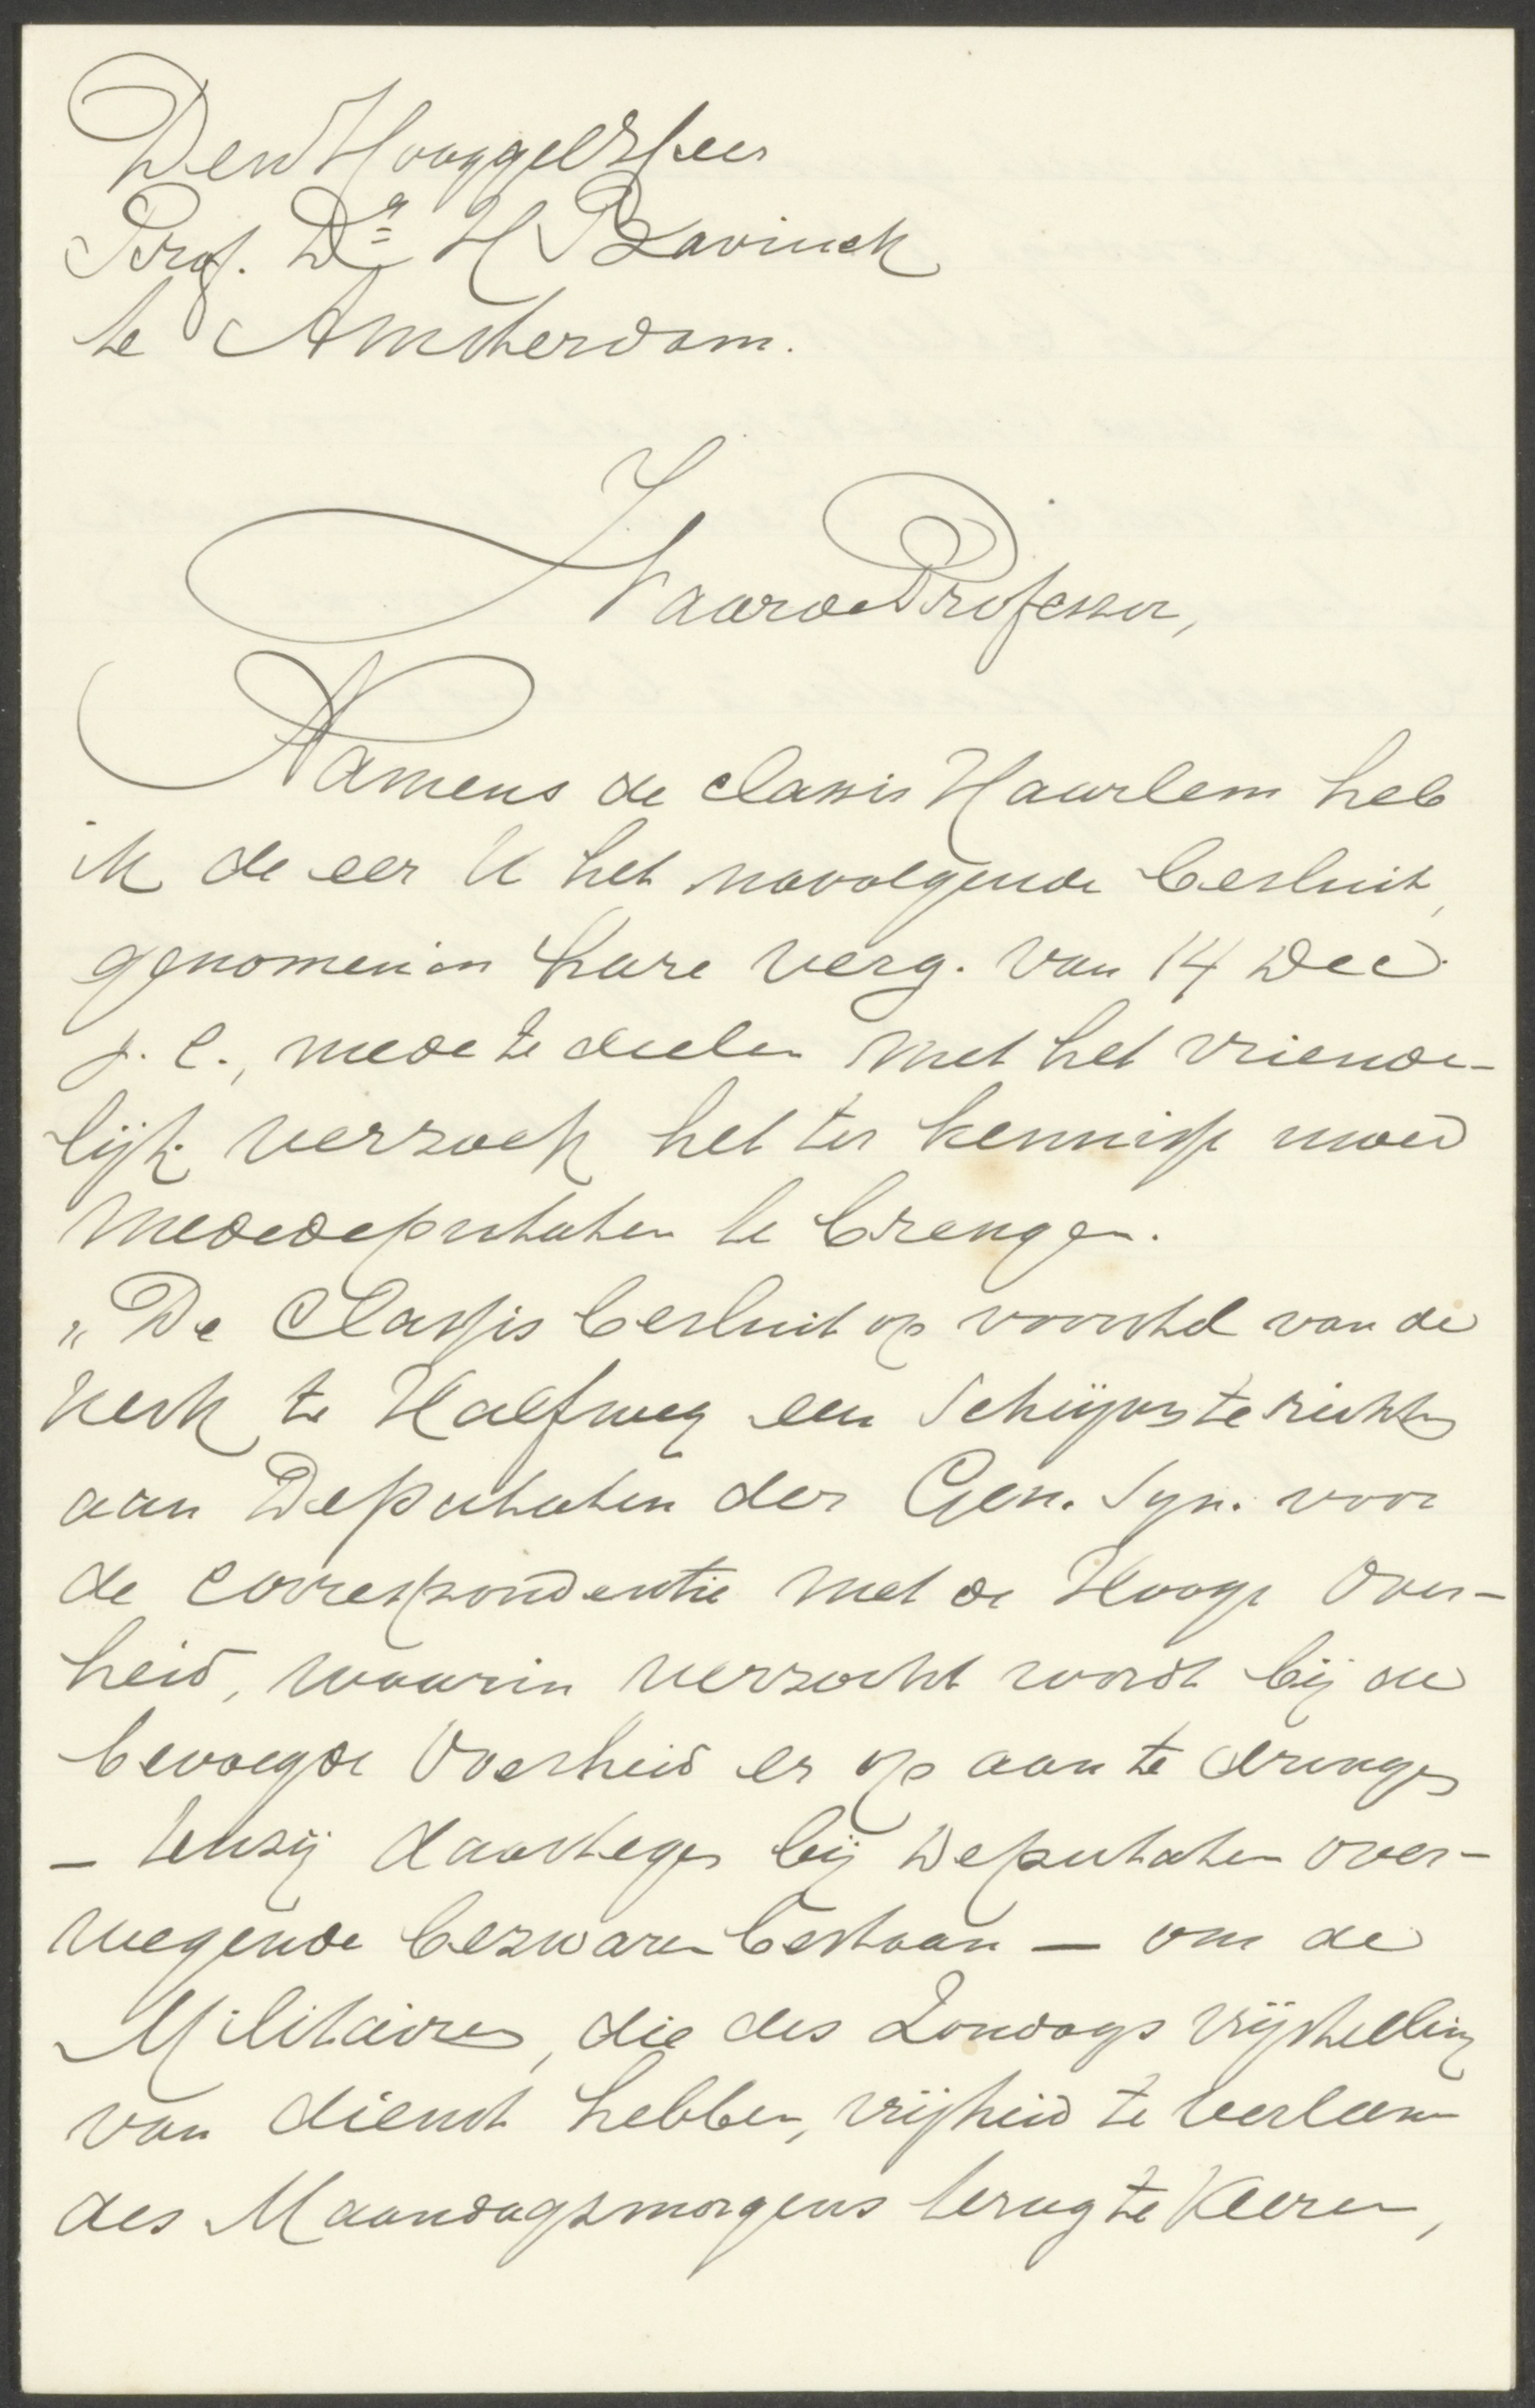 Den Hooggel Heer
Prof. Dr H Bavinck
te Amsterdam.
Waarde Professor,
Namens de classis Haarlem heb
ik de eer U het navolgende besluit,
genomen in hare verg. van 14 Dec.
j. l., mede te deelen met het vriende-
lijk verzoek het ter kennisse uwer
mededeputaten te brengen.
„De Classis besluit op voorstel van de
kerk te Halfweg een schrijven te richten
aan Deputaten der Gen. Syn. voor
de correspondentie met de Hooge Over-
heid, waarin verzocht wordt bij de
bevoegde Overheid er op aan te dringen
- tenzij daartegen bij Deputaten over-
wegende bezwaren bestaan - om de
Militairen, die des Zondags vrijstelling
van dienst hebben, vrijheid te verleenen
des Maandagsmorgens terug te keeren,